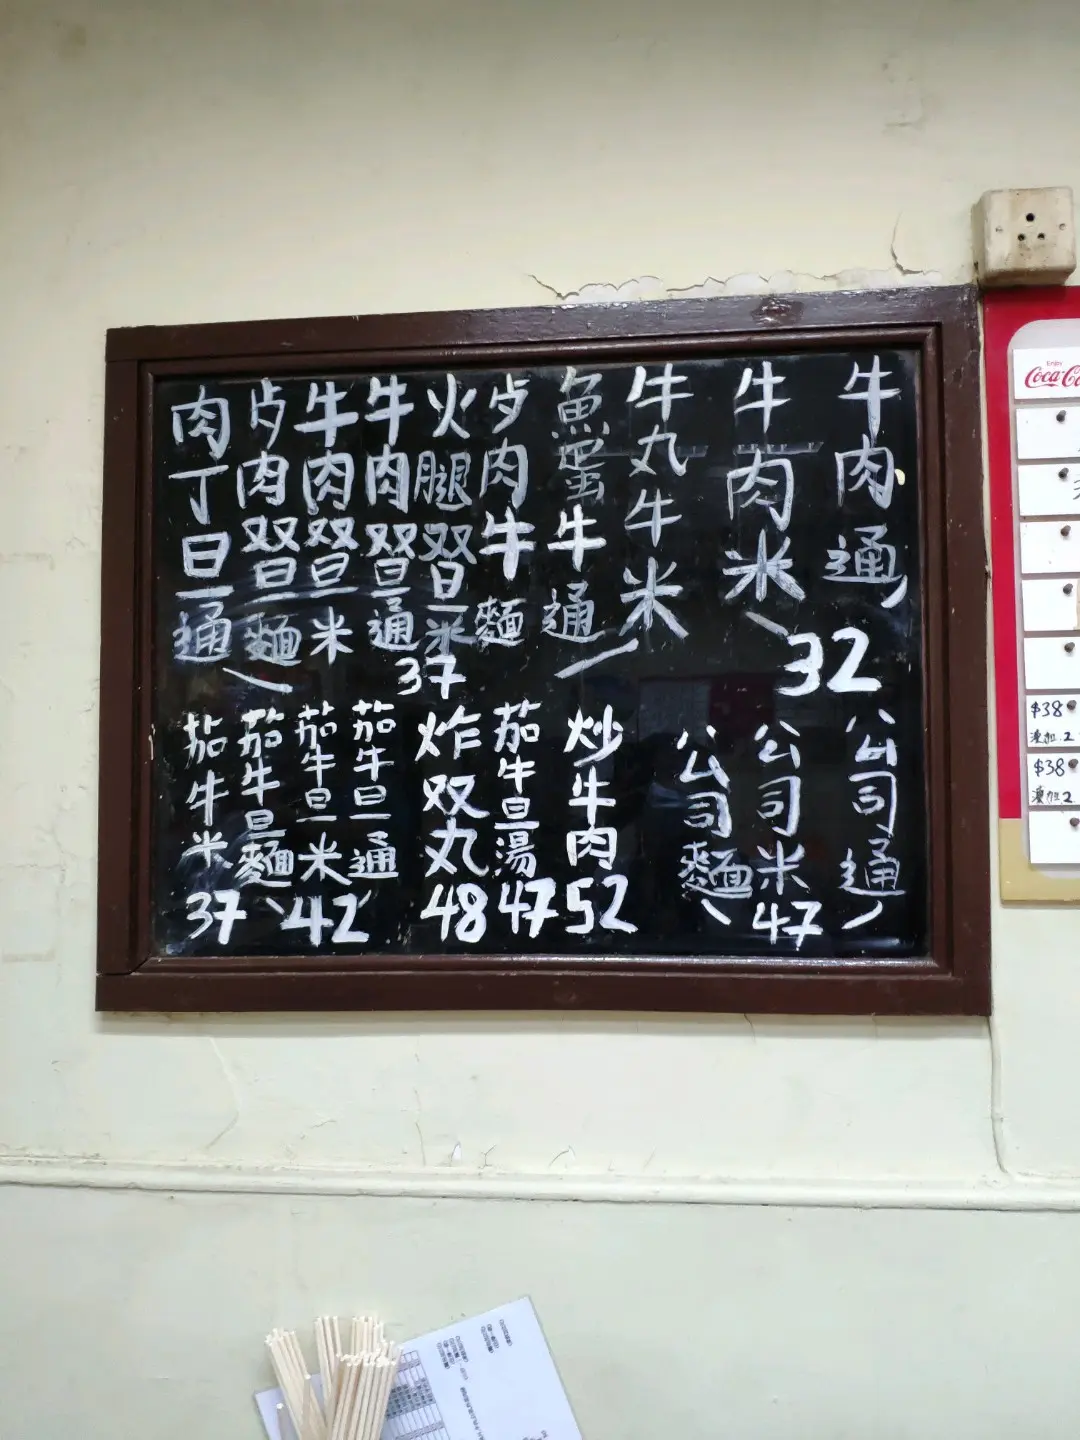 牛肉通
牛肉米
32
牛丸牛米
魚蛋牛通
歺肉牛麵
火腿双旦米
牛肉双旦通
牛肉双旦米
歺肉双旦麵
肉丁旦通
37
公司通
公司米
公司麵
47
炒牛肉
52
茄牛旦湯
47
炸双丸
48
茄牛旦通
茄牛旦米
茄牛旦麵
42
茄牛米
37
Enjoy
Coca-Co
$38
$38